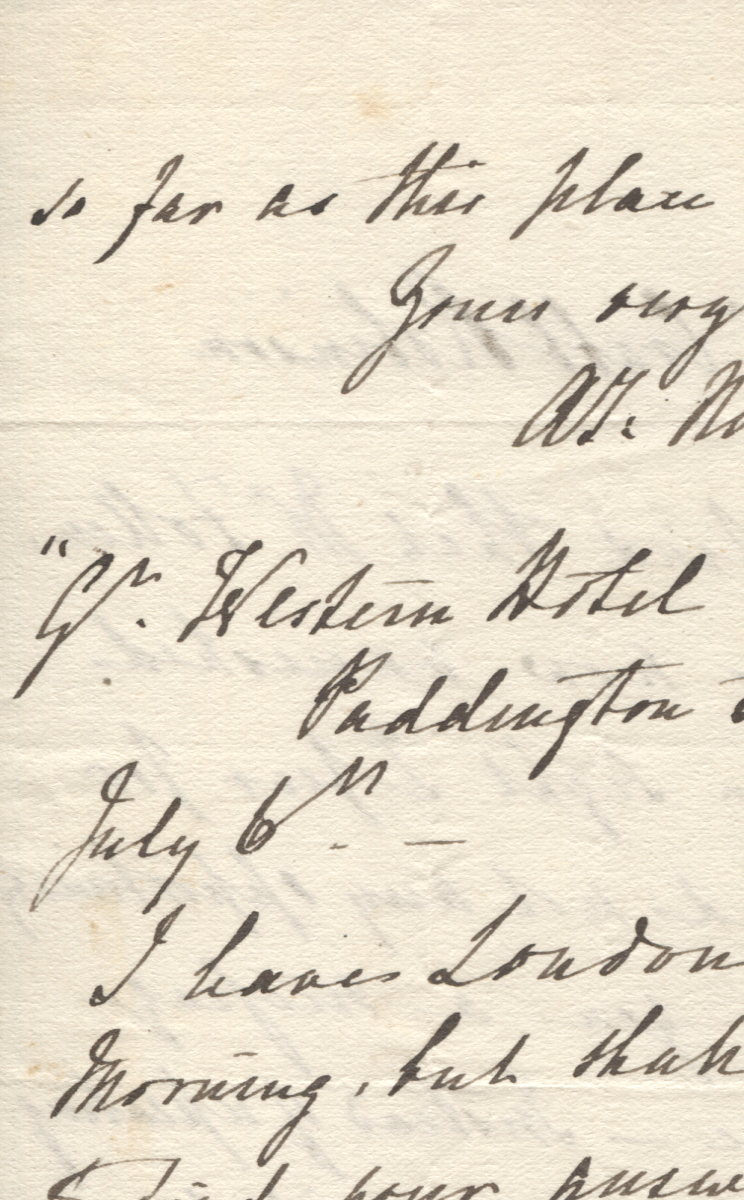 so far as this place
Yours very
"Gr. Western Hotel
Paddington
July 6th. —
I leaves London
Morning, but shall
your answe